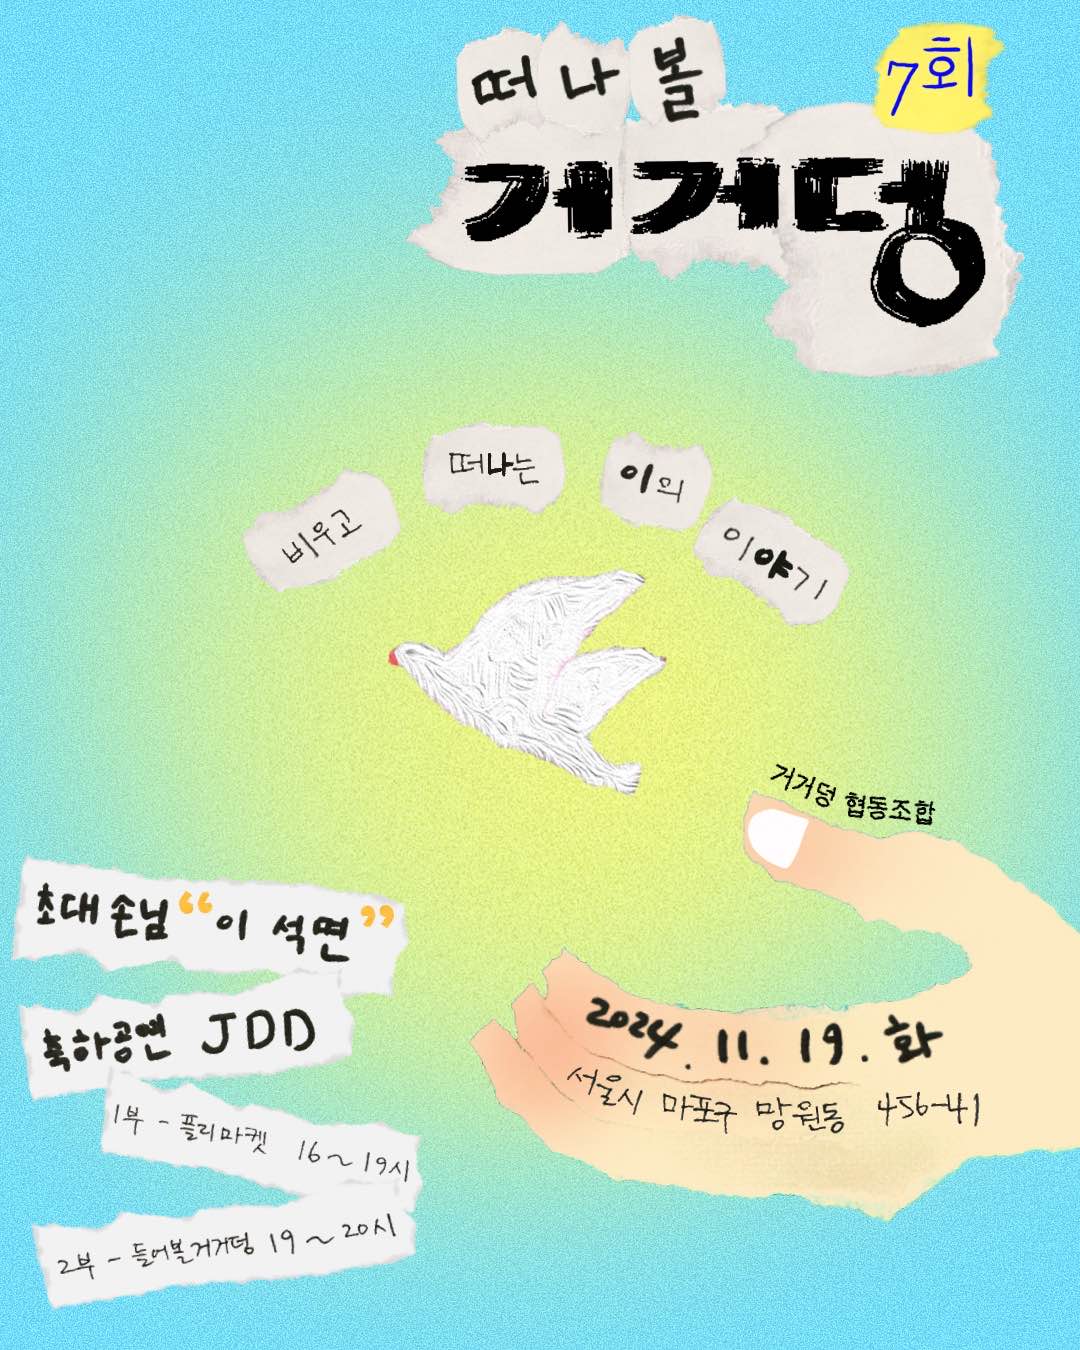 떠나볼
7회
거거덩
비우고 떠나는 이의 이야기
거거덩 협동조합
초대손님 “이석면”
축하공연 JDD
1부 - 플리마켓 16~19시
2부 - 들어볼거거덩 19~20시
2024. 11. 19. 화
서울시 마포구 망원동 456-41